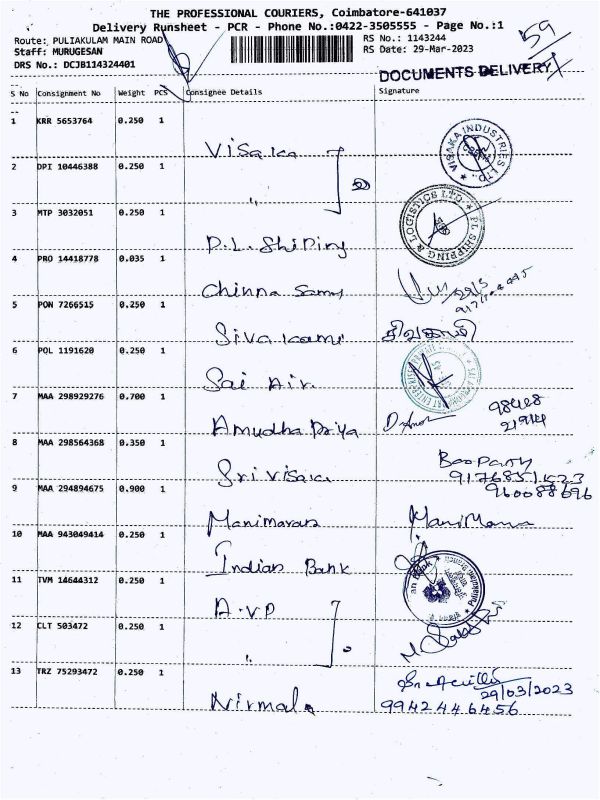 THE PROFESSIONAL COURIERS, Coimbatore-641037
Delivery Runsheet - PCR - Phone No.:0422-3505555 - Page No.:1
Route: PULIAKULAM MAIN ROAD
RS No.: 1143244
Staff: MURUGESAN
RS Date: 29-Mar-2023
59
DRS No.: DCJB114324401
DOCUMENTS DELIVERY
S No Consignment No Weight PCS Consignee Details Signature
1 KRR 5653764 0.250 1 Visaka
VISAKA INDUSTRIES LTD.
2 DPI 10446388 0.250 1 "
3 MTP 3032051 0.250 1 P.L. Shiping
PL SHIPPING & LOGISTICS LTD.
4 PRO 14418778 0.035 1 Chinna Samy
5 PON 7266515 0.250 1 Sivakami சிவகாமி
6 POL 1191620 0.250 1 Sai Air
7 MAA 298929276 0.700 1 Amudha Priya
98428
21914
8 MAA 298564368 0.350 1 Sri Visaka
9 MAA 294894675 0.900 1 Manimaran
10 MAA 943049414 0.250 1 Indian Bank
11 TVM 14644312 0.250 1 A.V.P
12 CLT 503472 0.250 1 "
13 TRZ 75293472 0.250 1 Nirmala
29/03/2023
9942446456